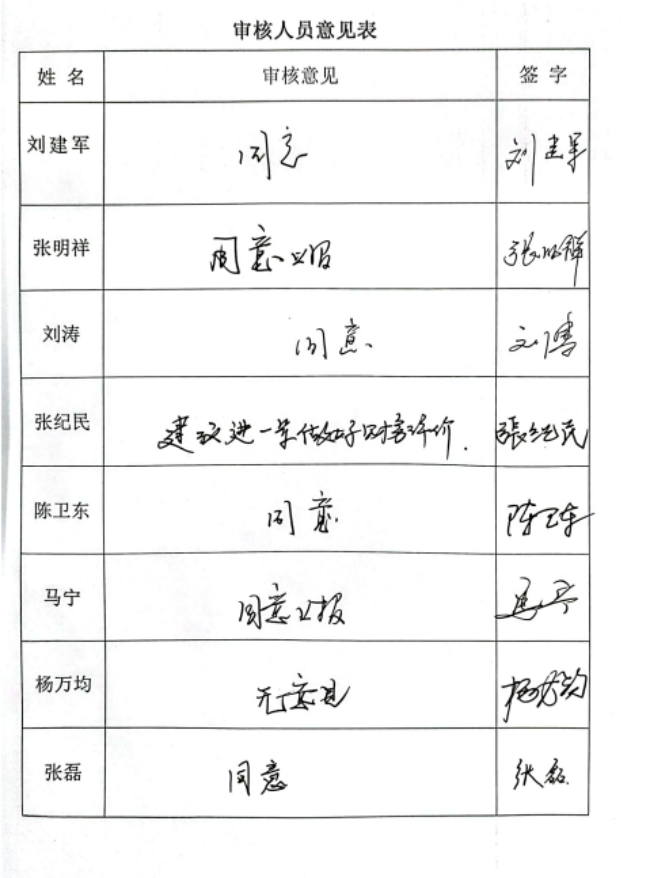 审核人员意见表
姓名 审核意见 签字
刘建军 同意 刘建军
张明祥 同意上报 张明祥
刘涛 同意. 刘涛
张纪民 建议进一步做好对标评价. 張纪民
陈卫东 同意. 陈卫东
马宁 同意上报 马宁
杨万均 无意见 杨万均
张磊 同意 张磊.